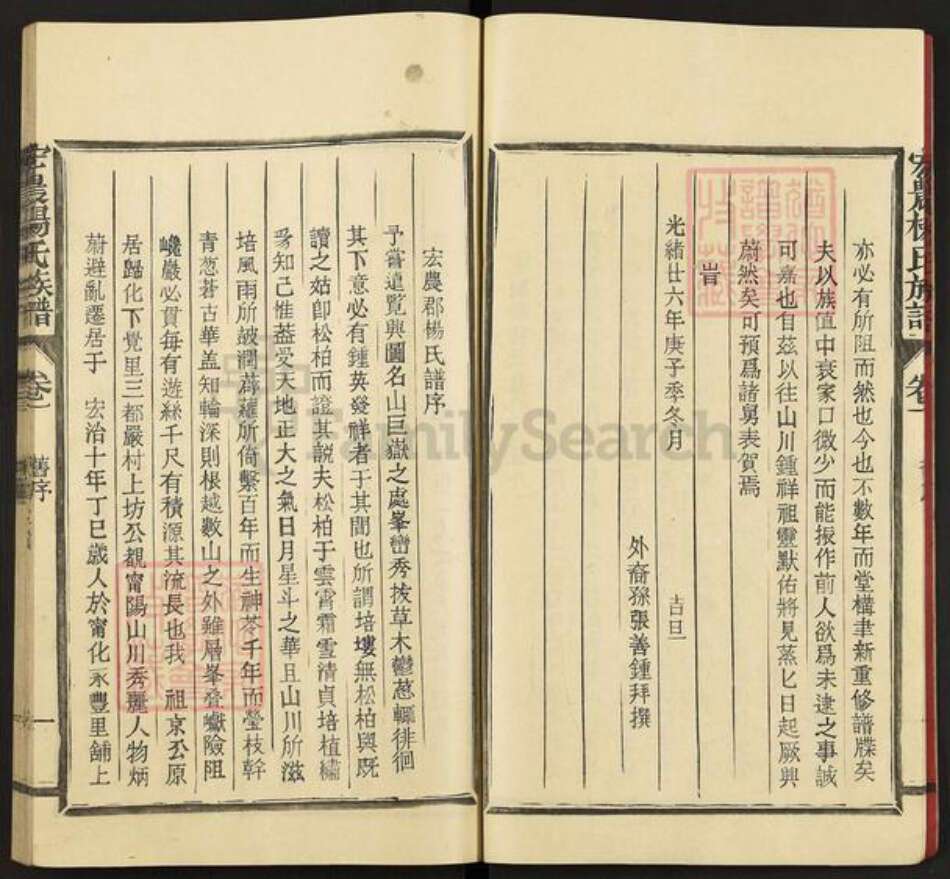 亦必有所阻而然也今也不數年而堂構聿新重修譜牒矣
夫以族值中衰家口微少而能振作前人欲爲未逮之事誠
可嘉也自茲以往山川鍾祥祖靈默佑將見蒸匕日起厥興
蔚然矣可預爲諸舅表賀焉
旹
光緒廿六年庚子季冬月 吉旦
外裔孫張善鍾拜撰
宏農楊氏族譜 卷一
宏農郡楊氏譜序
予嘗遠覽輿圖名山巨嶽之處峯巒秀拔草木鬱葱輒徘徊
其下意必有鍾英發祥者于其間也所謂培塿無松柏與既
讀之姑卽松柏而證其說夫松柏于雲霄霜雪清貞培植繡
爲知己惟葢受天地正大之氣日月星斗之華且山川所滋
培風雨所波潤薜蘿所倚繫百年而生神苓千年而瑩枝幹
青葱蒼古華盖知輪深則根越數山之外雖層峯叠巘險阻
巉巖必貫每有遊絲千尺有積源其流長也我 祖京公原
居歸化下覺里三都嚴村上坊公覩甯陽山川秀麗人物炳
蔚避亂遷居于 宏治十年丁巳歲人於甯化永豐里舖上
宏農楊氏族譜 卷一 舊序
FamilySearch